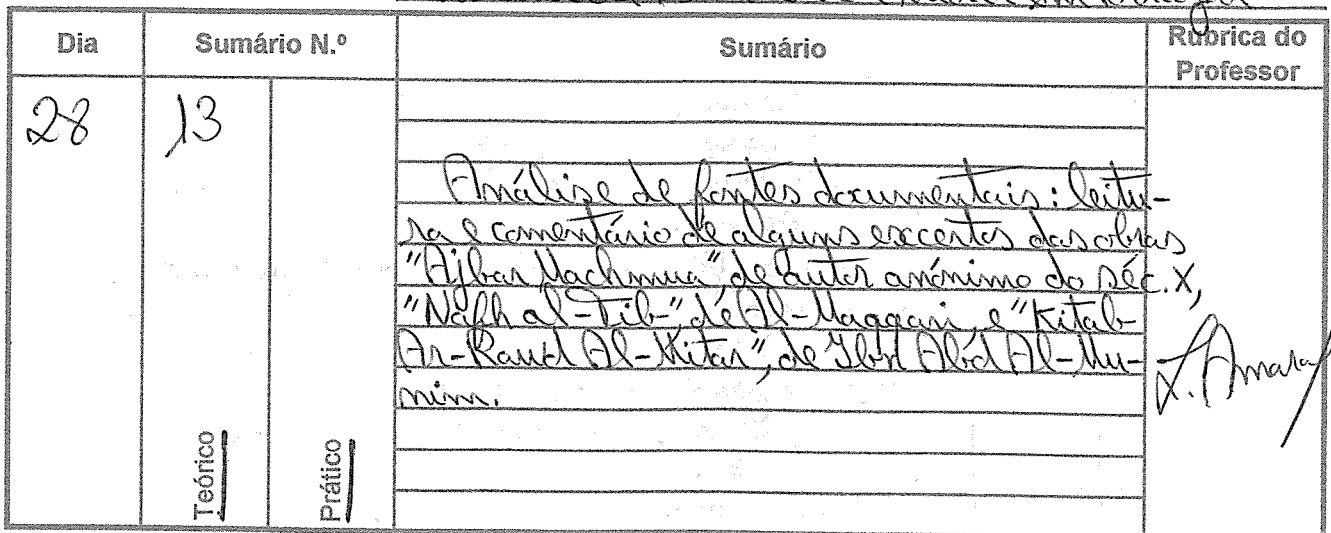 Dia Sumário N.º Sumário Rubrica do Professor
28 13
Análise de fontes documentais: leitu-
ra e comentário de alguns excertos das obras
"Ajbar Machmua" de autor anónimo do séc. X,
"Nafh al-Tib" de Al-Maqqari, e "Kitab
Ar-Raud Al-Mitar", de Ibn Abd Al-Mu-
nim.
L. Amaral
Teórico Prático